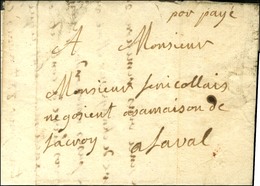 por payé
A Monsieur
Monsieur Senicollais
negosient asamaison de
a Laval